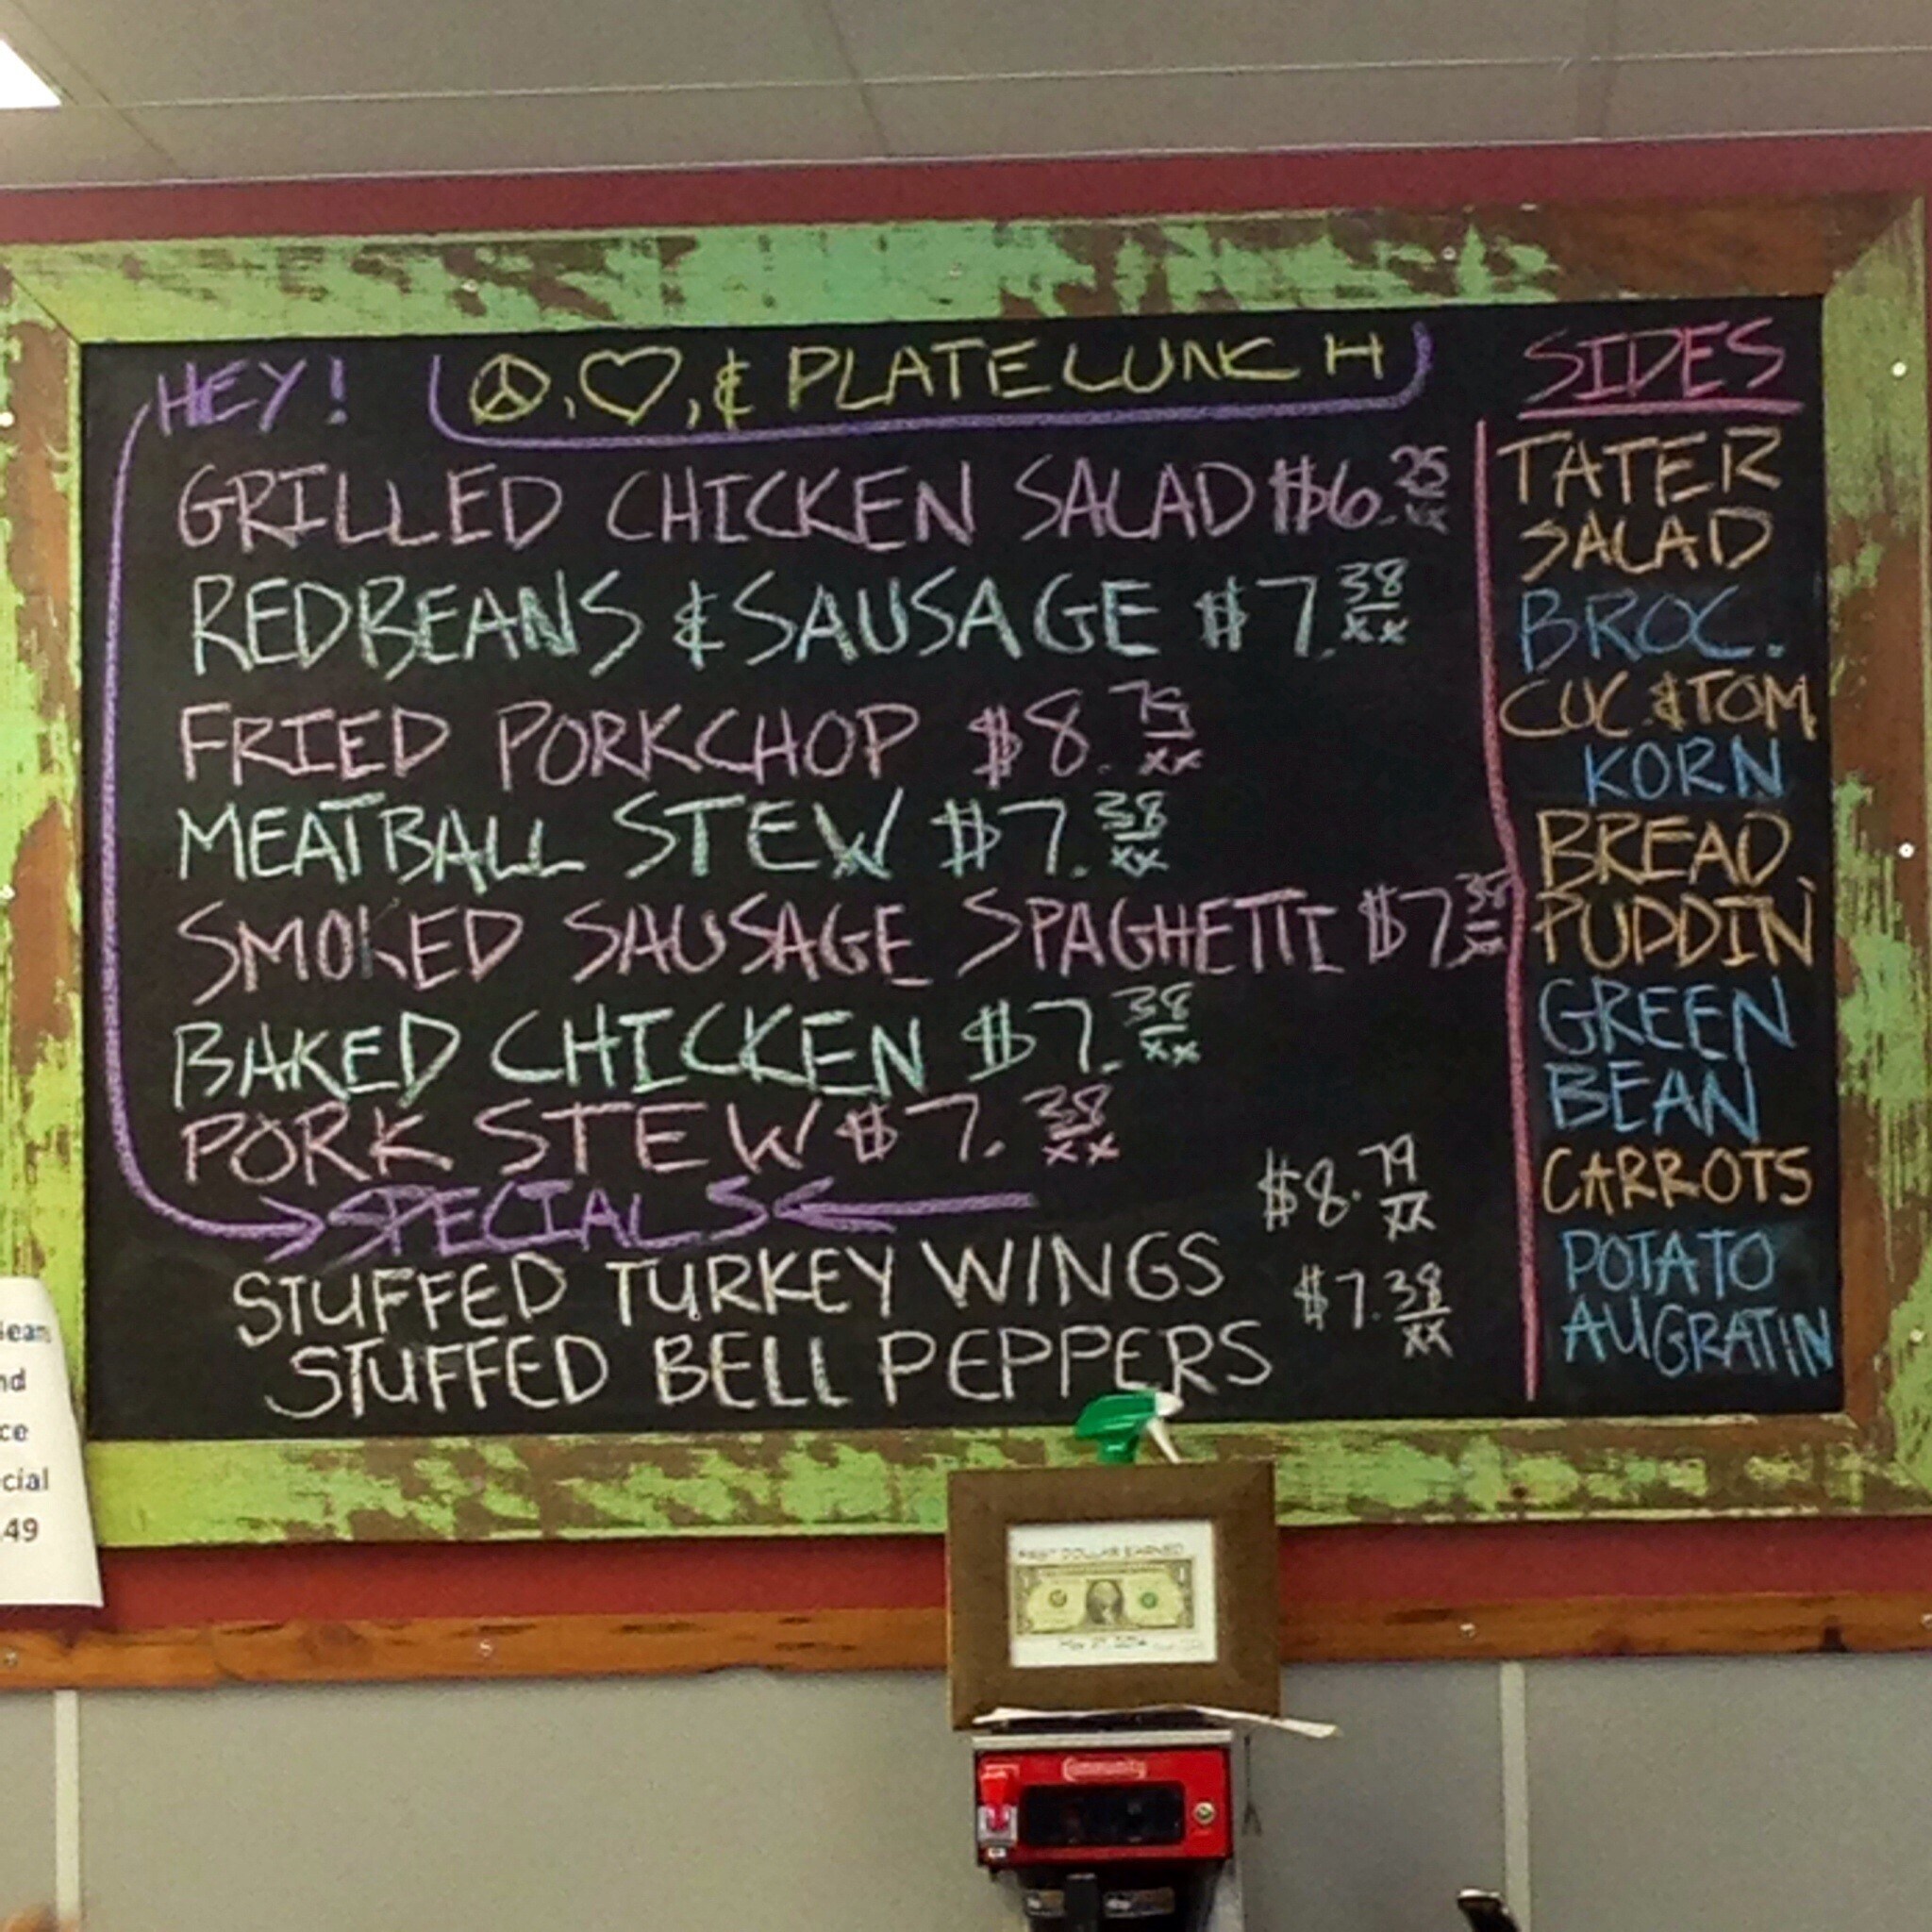 HEY! ☮, ♡, & PLATE LUNCH
GRILLED CHICKEN SALAD $6.25/xx
RED BEANS & SAUSAGE $7.38/xx
FRIED PORKCHOP $8.75/xx
MEATBALL STEW $7.38/xx
SMOKED SAUSAGE SPAGHETTI $7.38/xx
BAKED CHICKEN $7.38/xx
PORK STEW $7.38/xx
SPECIALS
STUFFED TURKEY WINGS $8.79/xx
STUFFED BELL PEPPERS $7.38/xx
SIDES
TATER
SALAD
BROC.
CUC. & TOM.
KORN
BREAD
PUDDIN'
GREEN
BEAN
CARROTS
POTATO
AUGRATIN
nd
ce
cial
.49
FIRST DOLLAR EARNED
Community